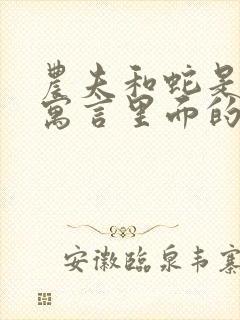 農夫和蛇是
寓言里而的
安徽臨泉韦寨